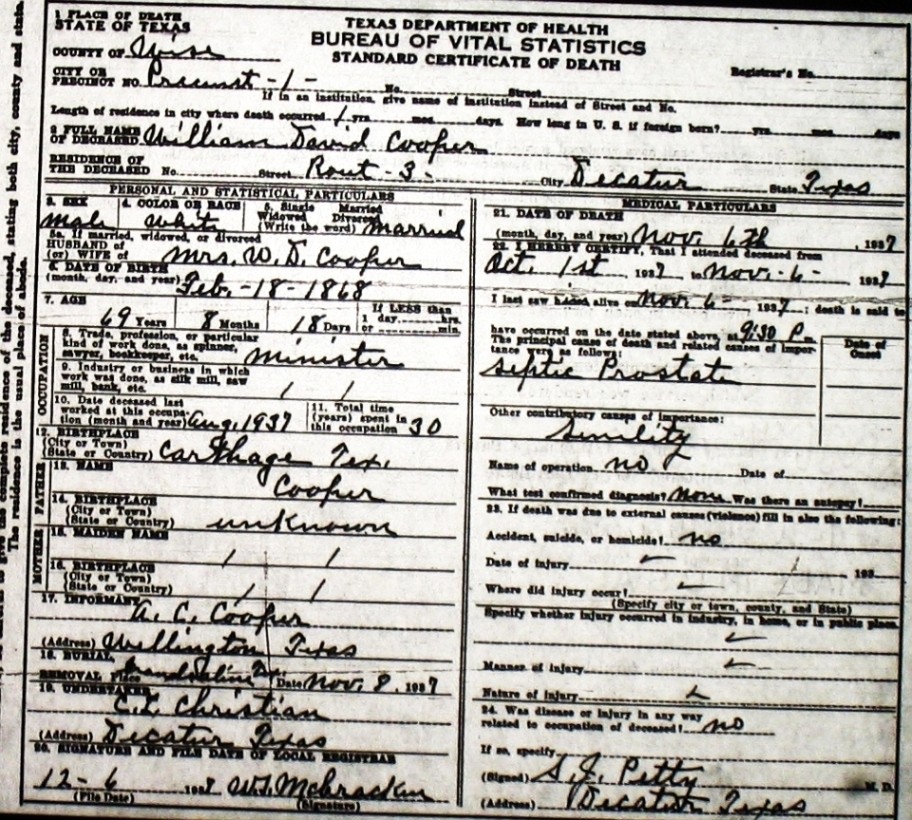 1 PLACE OF DEATH
STATE OF TEXAS
TEXAS DEPARTMENT OF HEALTH
BUREAU OF VITAL STATISTICS
STANDARD CERTIFICATE OF DEATH
COUNTY OF Wise
Registrar's No.
CITY OR PRECINCT NO. Precinct -1- No. Street
If in an institution, give name of institution instead of Street and No.
Length of residence in city where death occurred 1 yrs. mos. days. How long in U. S. if foreign born? yrs. mos. days
2 FULL NAME OF DECEASED William David Cooper
RESIDENCE OF THE DECEASED No. Street Rout -3- City Decatur State Texas
PERSONAL AND STATISTICAL PARTICULARS
3. SEX Male
4. COLOR OR RACE White
5. Single Married Widowed Divorced (Write the word) Married
5a. If married, widowed, or divorced
HUSBAND OF (or) WIFE of Mrs. W. D. Cooper
6. DATE OF BIRTH
(month, day, and year) Feb. -18-1868
7. AGE
69 Years 8 Months 18 Days If LESS than 1 day, hrs. or min.
OCCUPATION
8. Trade, profession, or particular kind of work done, as spinner, sawyer, bookkeeper, etc. minister
9. Industry or business in which work was done, as silk mill, saw mill, bank, etc. / /
10. Date deceased last worked at this occupation (month and year) Aug, 1937
11. Total time (years) spent in this occupation 30
12. BIRTHPLACE
(City or Town)
(State or Country) Carthage Tex.
FATHER
13. NAME
Cooper
14. BIRTHPLACE
(City or Town)
(State or Country) unknown
MOTHER
15. MAIDEN NAME / /
16. BIRTHPLACE
(City or Town)
(State or Country) / /
17. INFORMANT
A. C. Cooper
(Address) Wellington Texas
18. BURIAL,
REMOVAL Place Date Nov. 8, 1937
19. UNDERTAKER
C. L. Christian
(Address) Decatur Texas
20. SIGNATURE AND FILE DATE OF LOCAL REGISTRAR
12-6 193
(File Date) (Signature)
MEDICAL PARTICULARS
21. DATE OF DEATH
(month, day, and year) Nov. 6th, 1937
22. I HEREBY CERTIFY, That I attended deceased from
Oct. 1st, 1937, to Nov. -6-, 1937
I last saw h alive on Nov. 6 - 1937; death is said to
have occurred on the date stated above, at 9:30 P. m.
The principal cause of death and related causes of importance were as follows:
Date of Onset
Septic Prostate
Other contributory causes of importance:
Senility
Name of operation no Date of
What test confirmed diagnosis? None Was there an autopsy?
23. If death was due to external causes (violence) fill in also the following:
Accident, suicide, or homicide? no
Date of injury 193
Where did injury occur?
(Specify city or town, county, and State)
Specify whether injury occurred in industry, in home, or in public place.
Manner of injury
Nature of injury
24. Was disease or injury in any way related to occupation of deceased? no
If so, specify
(Signed) S. J. Petty M. D.
(Address) Decatur Texas
The residence is the usual place of abode.
give the complete residence of the deceased, stating both city, county and state.